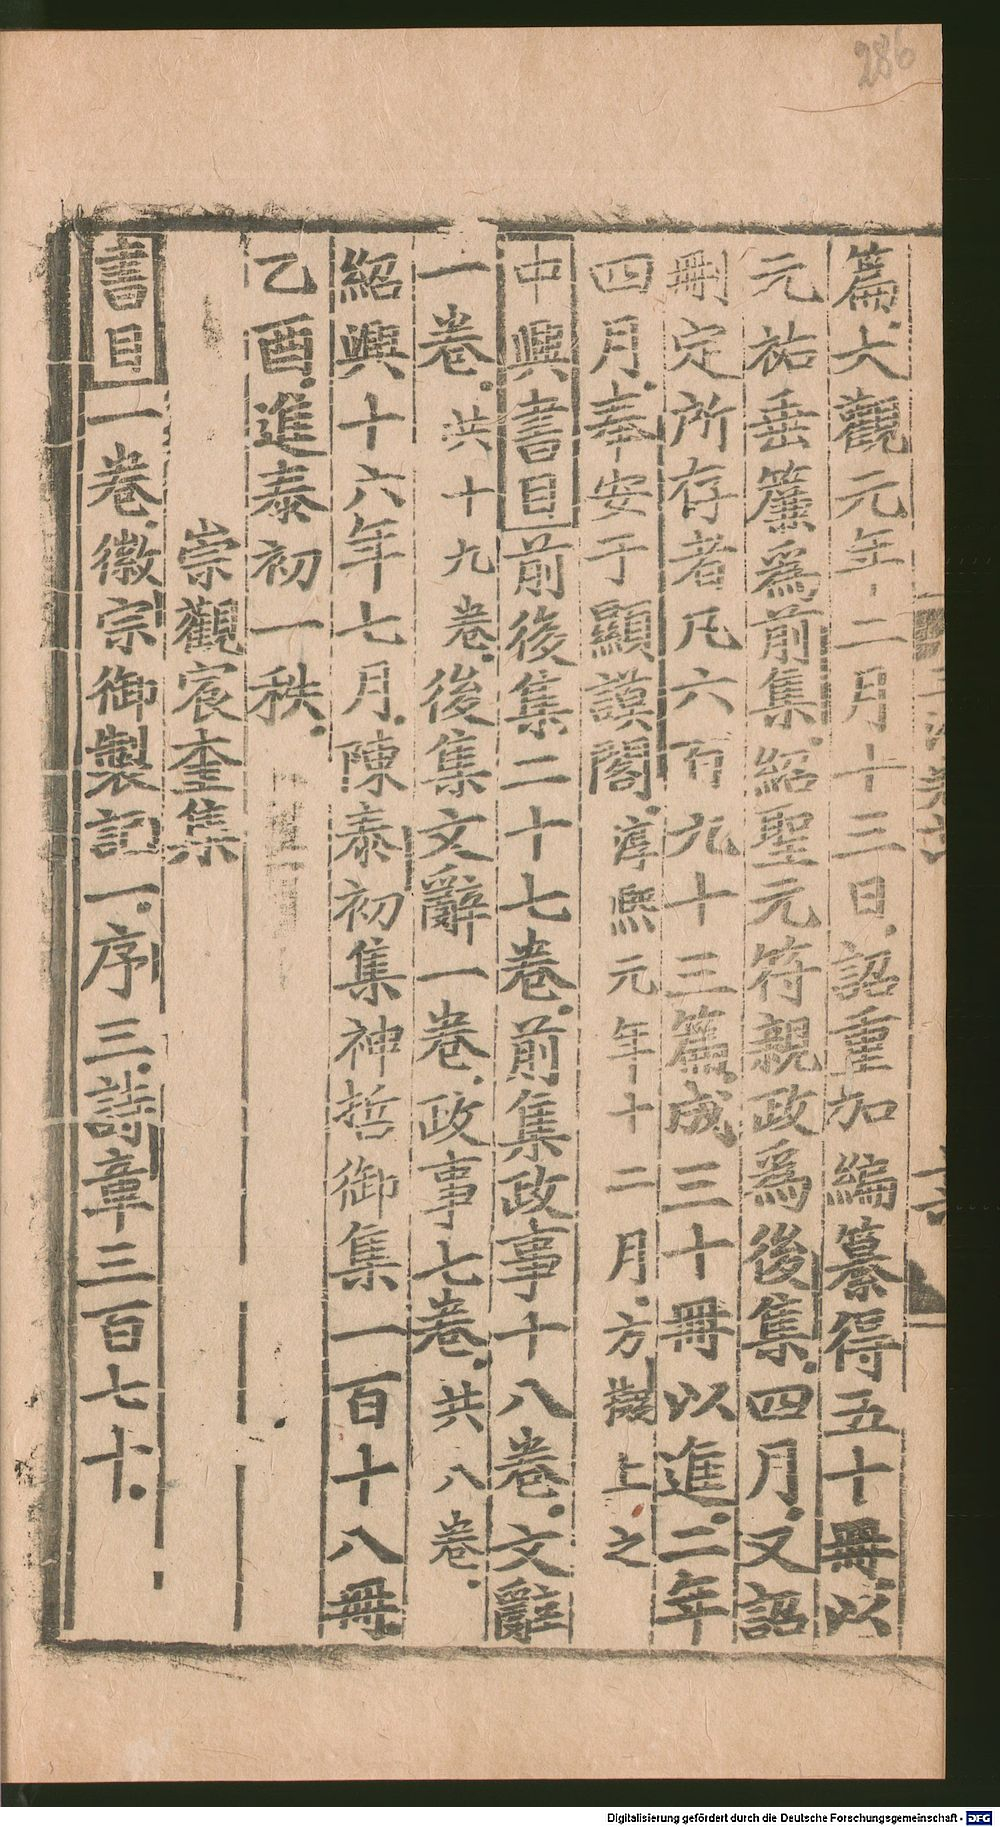 286
篇大觀元年十二月十三日詔重加編纂得五十冊以
元祐垂簾爲前集紹聖元符親政爲後集四月又詔
刪定所存者凡六百九十三篇成三十冊以進二年
四月奉安于顯謨閣淳熙元年十二月方上之
中興書目前後集二十七卷前集政事十八卷文辭
一卷共十九卷後集文辭一卷政事七卷共八卷
紹興十六年七月陳泰初集神哲御集一百十八冊
乙酉進泰初一秩
崇觀宸奎集
書目一卷徽宗御製記一序三詩章三百七十
Digitalisierung gefördert durch die Deutsche Forschungsgemeinschaft - DFG